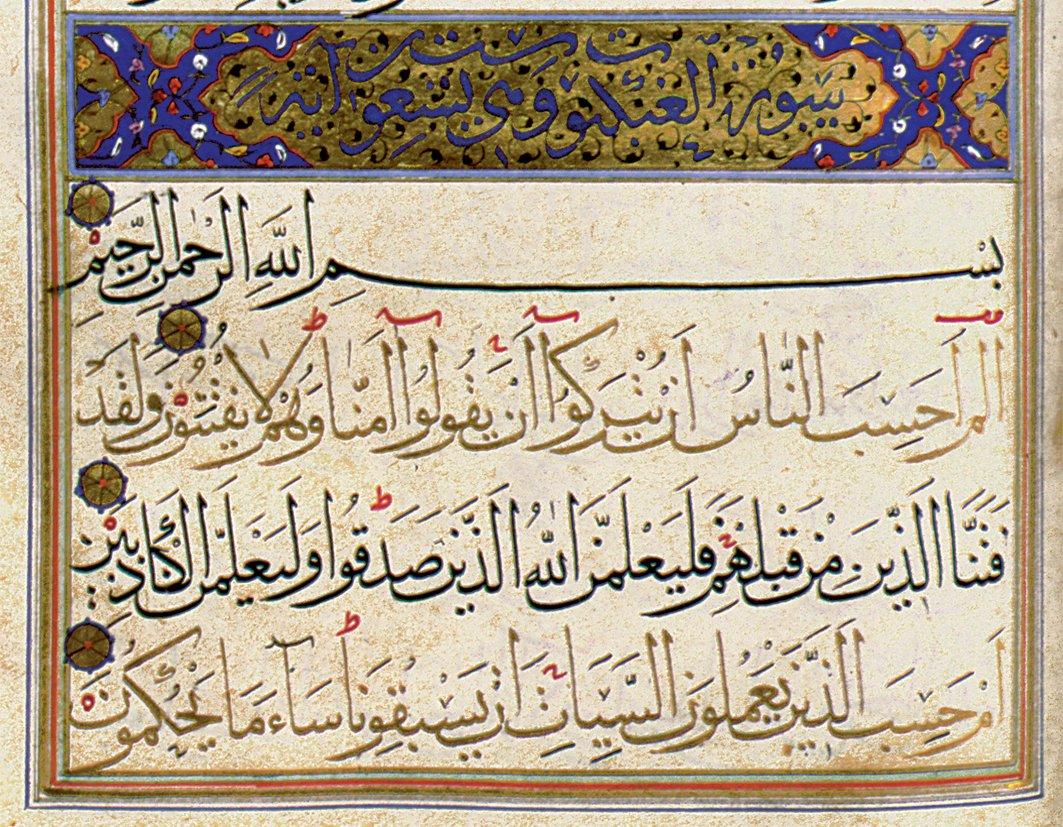 سورة العنكبوت وهي تسع وستون آية
بسم الله الرحمن الرحيم
الم أحسب الناس أن يتركوا أن يقولوا آمنا وهم لا يفتنون ولقد
فتنا الذين من قبلهم فليعلمن الله الذين صدقوا وليعلمن الكاذبين
أم حسب الذين يعملون السيئات أن يسبقونا ساء ما يحكمون